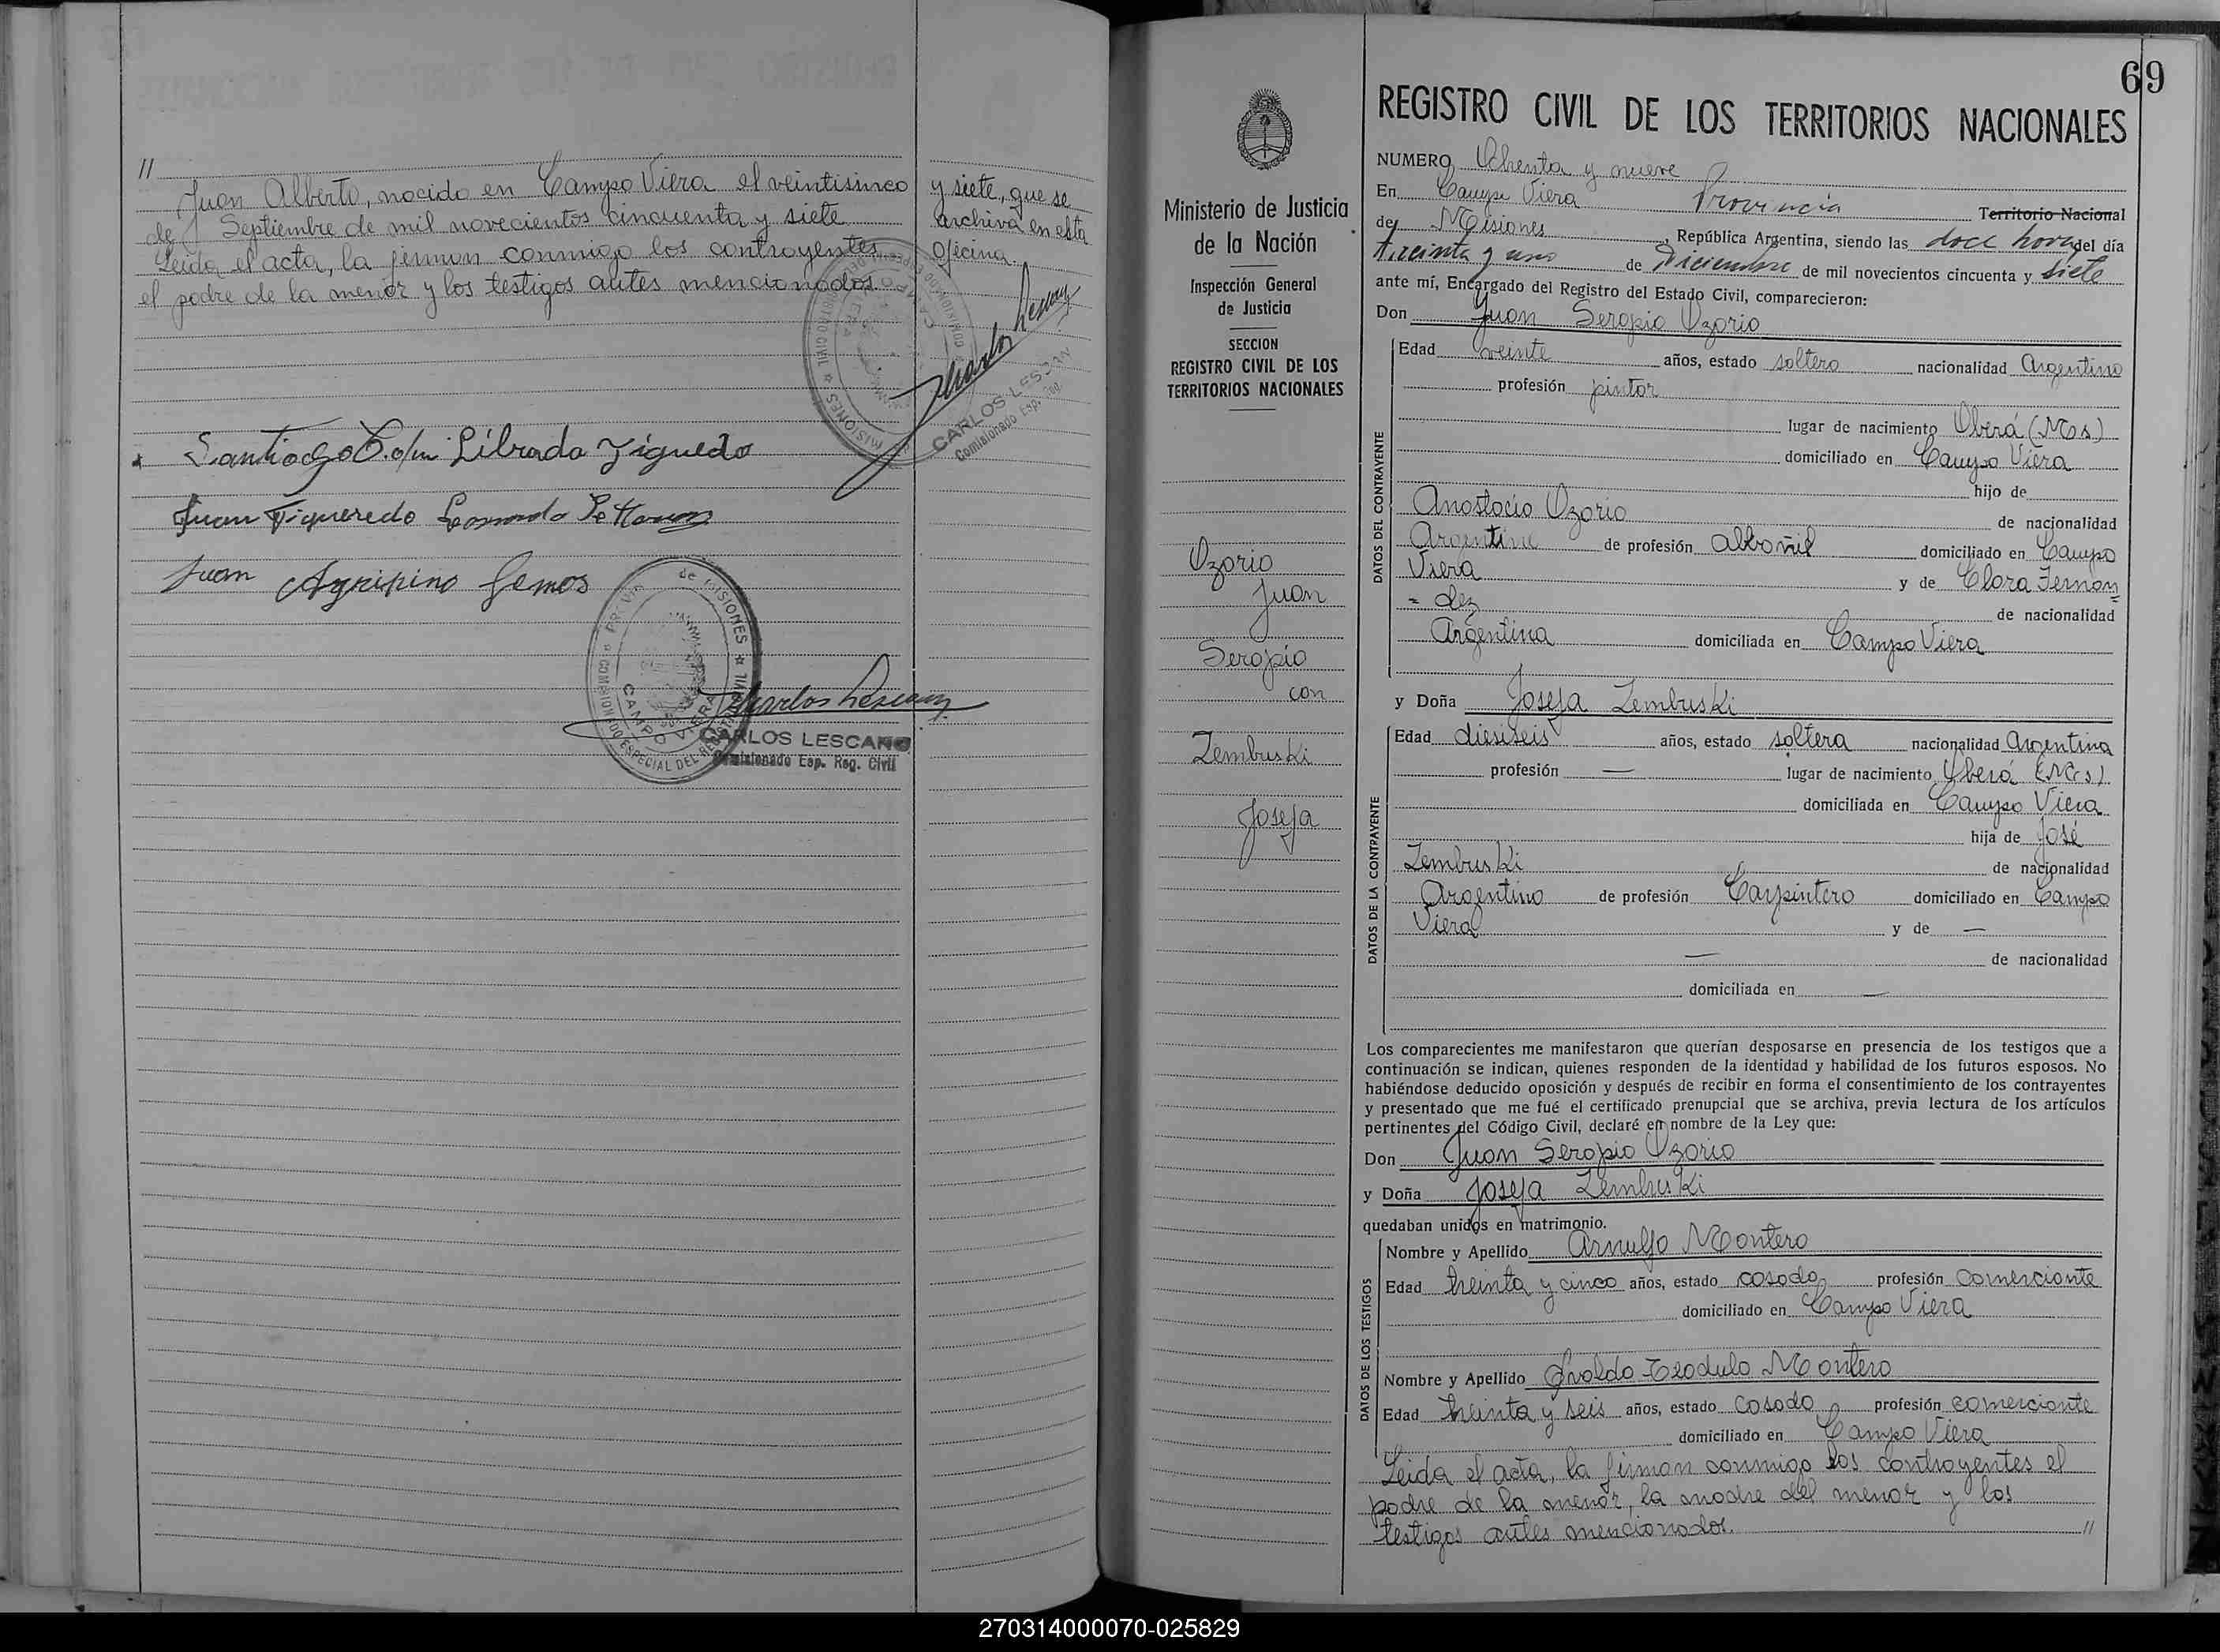 //
Juan Alberto, nacido en Campo Viera el veintisinco
de Septiembre de mil novecientos cincuenta y siete
Leida el acta, la firman conmigo los contrayentes,
el padre de la menor y los testigos antes mencionados.
y siete, que se
archiva en esta
Oficina.
CARLOS LESCANO
Comisionado Esp.
Juan Figueredo
Juan Agripino Lemos
de MISIONES
CAMPO VIERA
Carlos Lescano
CARLOS LESCANO
Comisionado Esp. Reg. Civil
69
Ministerio de Justicia
de la Nación
Inspección General
de Justicia
SECCION
REGISTRO CIVIL DE LOS
TERRITORIOS NACIONALES
Ozorio
Juan
Serapio
con
Zembruski
Josefa
REGISTRO CIVIL DE LOS TERRITORIOS NACIONALES
NUMERO Ochenta y nueve
En Campo Viera Provincia Territorio Nacional
de Misiones, República Argentina, siendo las doce horas del día
treinta y uno de Diciembre de mil novecientos cincuenta y siete
ante mí, Encargado del Registro del Estado Civil, comparecieron:
Don Juan Serapio Ozorio
DATOS DEL CONTRAYENTE
Edad veinte años, estado soltero nacionalidad Argentino
profesión pintor
lugar de nacimiento Oberá (Mes)
domiciliado en Campo Viera
hijo de
Anastacio Ozorio de nacionalidad
Argentino de profesión Albañil domiciliado en Campo
Viera y de Clara Fernan=
= dez de nacionalidad
Argentina domiciliada en Campo Viera
y Doña Josefa Zembruski
DATOS DE LA CONTRAYENTE
Edad dieseseis años, estado soltera nacionalidad Argentina
profesión — lugar de nacimiento Oberá (Mes)
domiciliada en Campo Viera
hija de José
Zembruski de nacionalidad
Argentino de profesión Carpintero domiciliado en Campo
Viera y de —
— de nacionalidad
domiciliada en —
Los comparecientes me manifestaron que querían desposarse en presencia de los testigos que a
continuación se indican, quienes responden de la identidad y habilidad de los futuros esposos. No
habiéndose deducido oposición y después de recibir en forma el consentimiento de los contrayentes
y presentado que me fué el certificado prenupcial que se archiva, previa lectura de los artículos
pertinentes del Código Civil, declaré en nombre de la Ley que:
Don Juan Serapio Ozorio
y Doña Josefa Zembruski
quedaban unidos en matrimonio.
DATOS DE LOS TESTIGOS
Nombre y Apellido Arnulfo Montero
Edad treinta y cinco años, estado casado profesión comerciante
domiciliado en Campo Viera
Nombre y Apellido Teodulo Montero
Edad treinta y seis años, estado casado profesión comerciante
domiciliado en Campo Viera
Leida el acta, la firman conmigo los contrayentes el
padre de la menor, la madre del menor y los
testigos antes mencionados. //
270314000070-025829